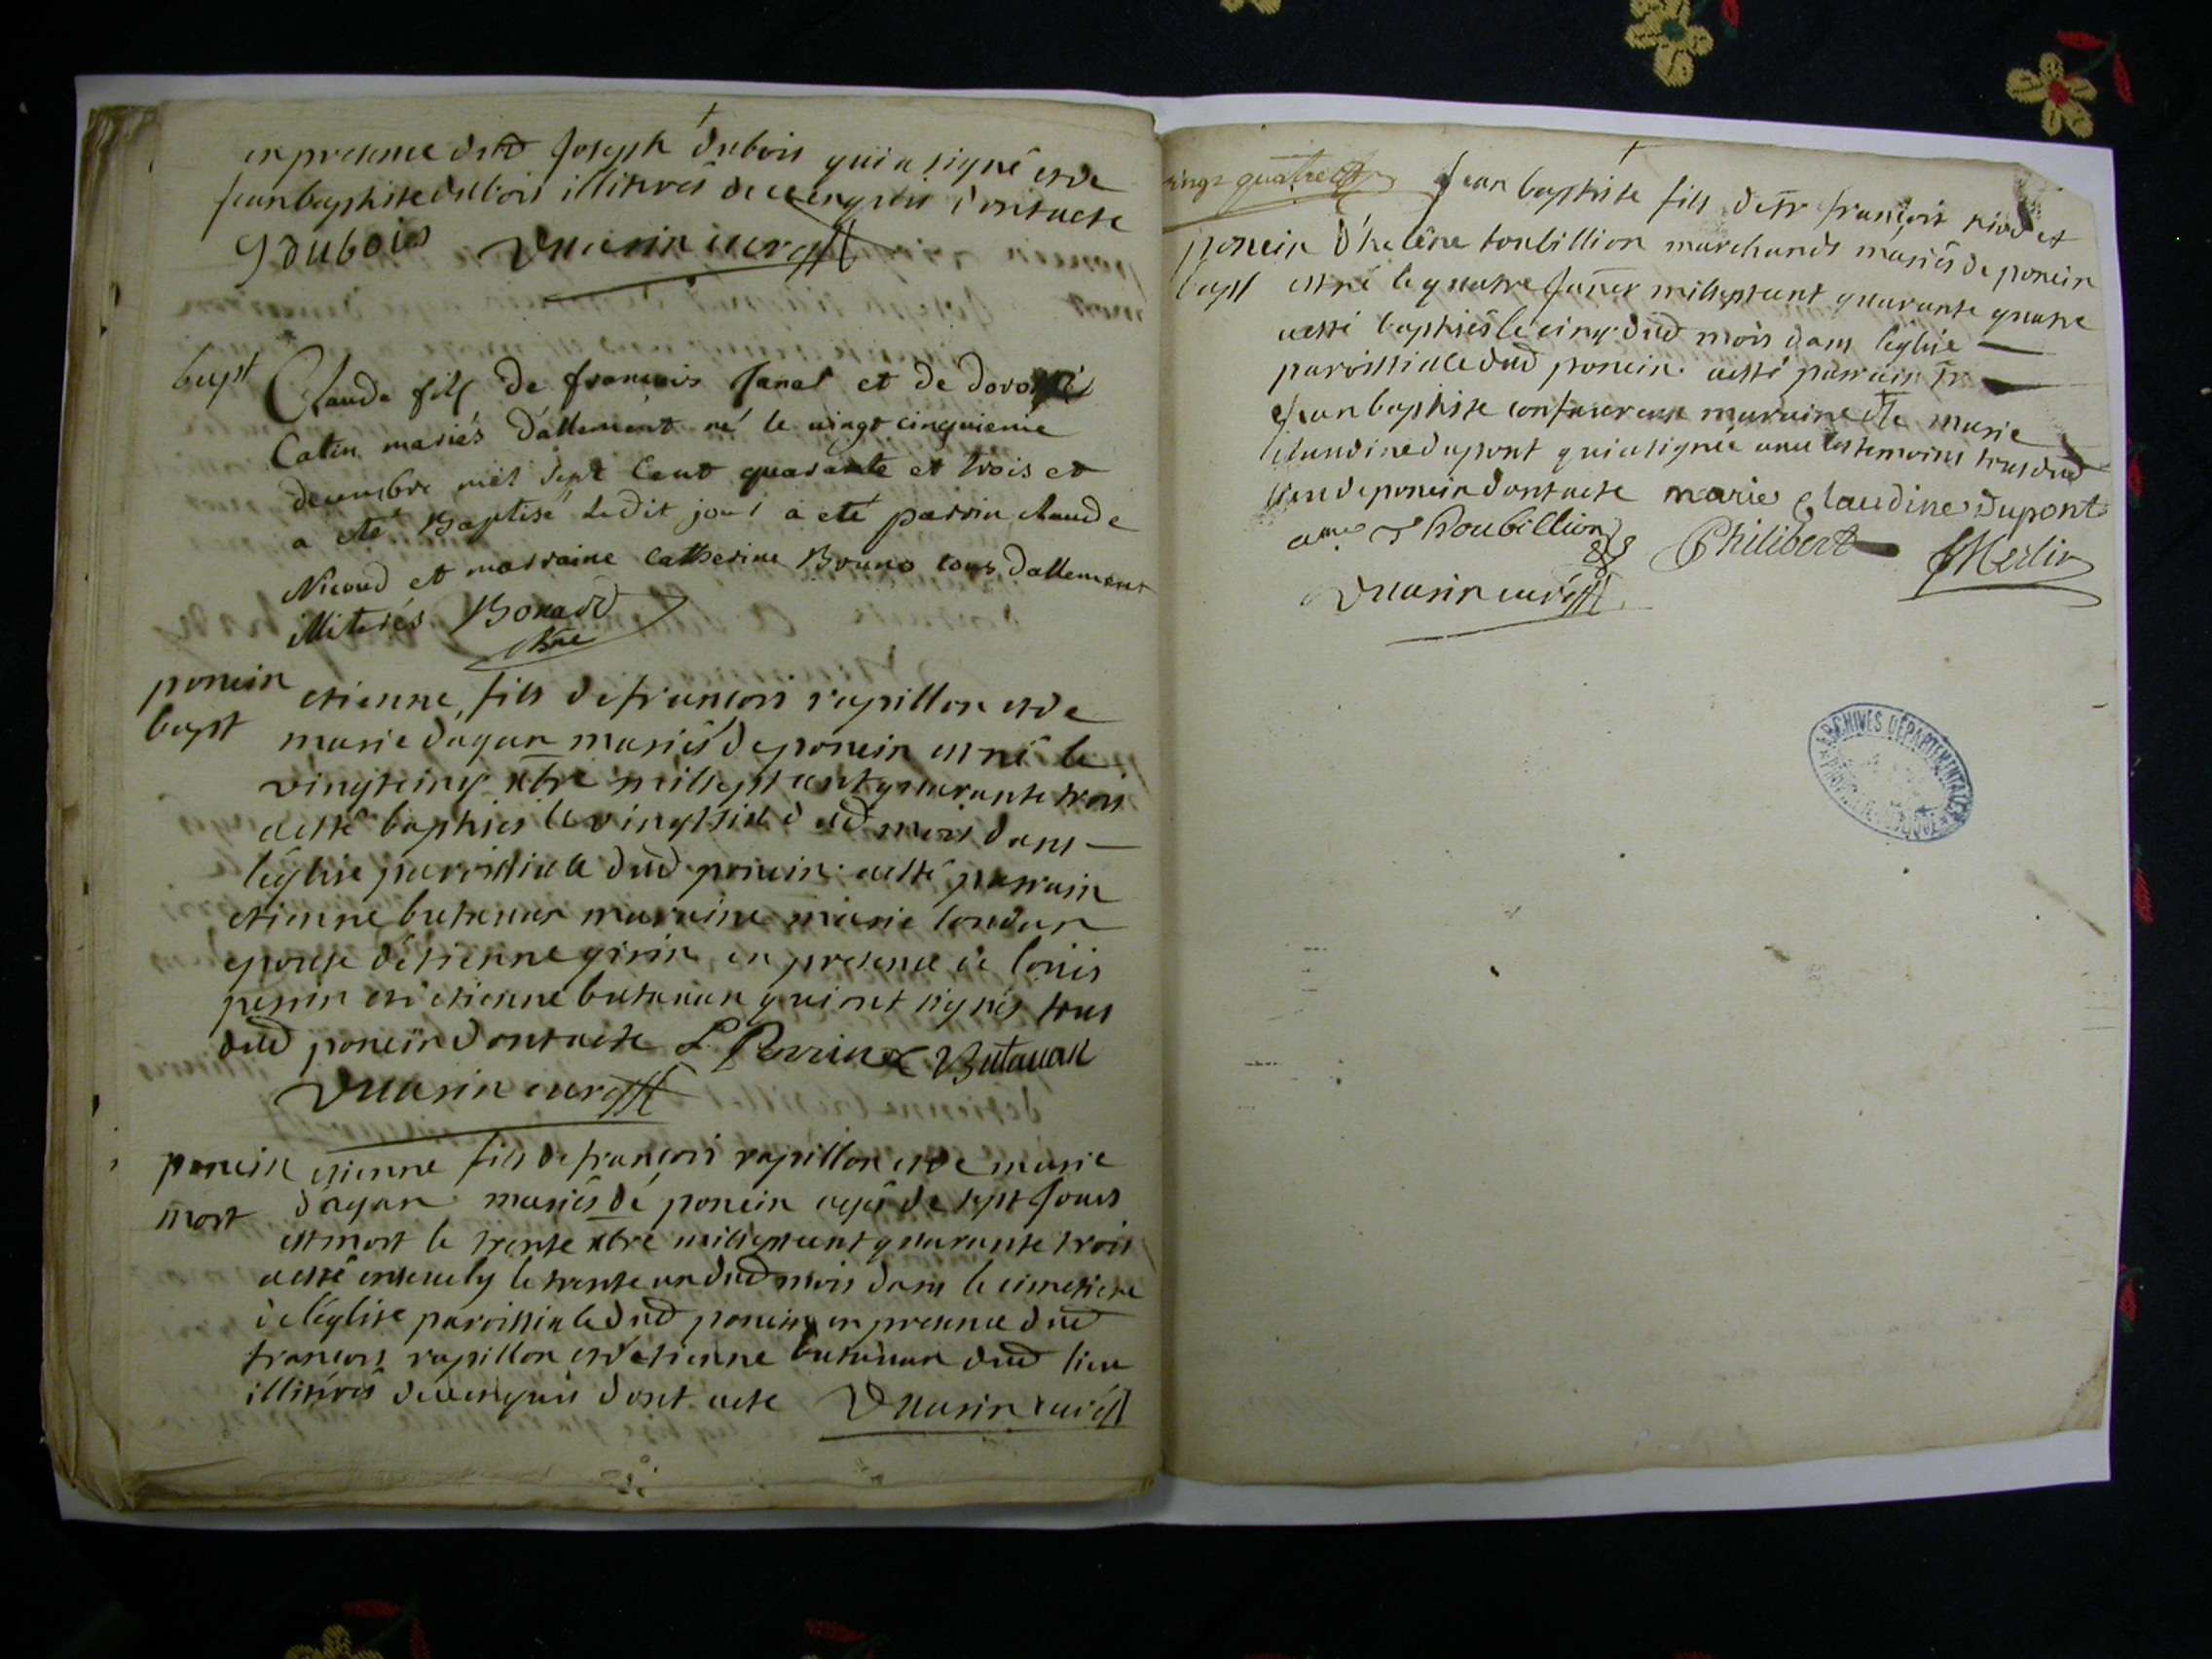 en presence dud Joseph dubois qui a signé et de
Jean baptiste dubois illiteres de ce enquis dont acte
J dubois Vuarin curé
bapt
Claude fils de francois Janel et de
Catin mariés d'allement né le vingt cinquieme
decembre mil sept Cent quarante et trois et
a eté Baptisé Ledit jour a eté parrin claude
Nicoud et marraine Catherine Bruno tous d'allement
illiterés Bonard
vre
poncin
bapt
etienne fils de francois rapillon et de
marie dagan mariés de poncin est né le
vingt cinq xbre mil sept cent quarante trois
a esté baptisé le vingt six dud mois dans
l'église paroissiale dud poncin a esté parrain
etienne butavan maraine marie
epouse d'etienne girin en presence de louis
perrin et d'etienne butavan qui ont signés tous
dud poncin dont acte L Perrin Butavan
Vuarin curé
poncin
mort
etienne fils de francois rapillon et de marie
dagan mariés de poncin agé de sept Jours
est mort le trente xbre mil sept cent quarante trois
a esté ensevely le trente un dud mois dans le cimetiere
de l'église paroissiale dud poncin en presence dud
francois rapillon et d'etienne butavan dud lieu
illiterés de ce enquis dont acte Vuarin curé
vingt quatre
poncin
bapt
Jean baptiste fils de sr francois et
d'helene toubillion marchands mariés de poncin
est né le quatre Janer mil sept cent quarante quatre
a esté baptisé le cinq dud mois dans l'église
paroissiale dud poncin a esté parrain sr
Jean baptiste maraine dlle marie
claudine dupont qui a signée avec les temoins tous dud
lieu de poncin dont acte marie Claudine dupont
Thoubillion Philibert Merlin
Vuarin curé
ARCHIVES DÉPARTEMENTALES